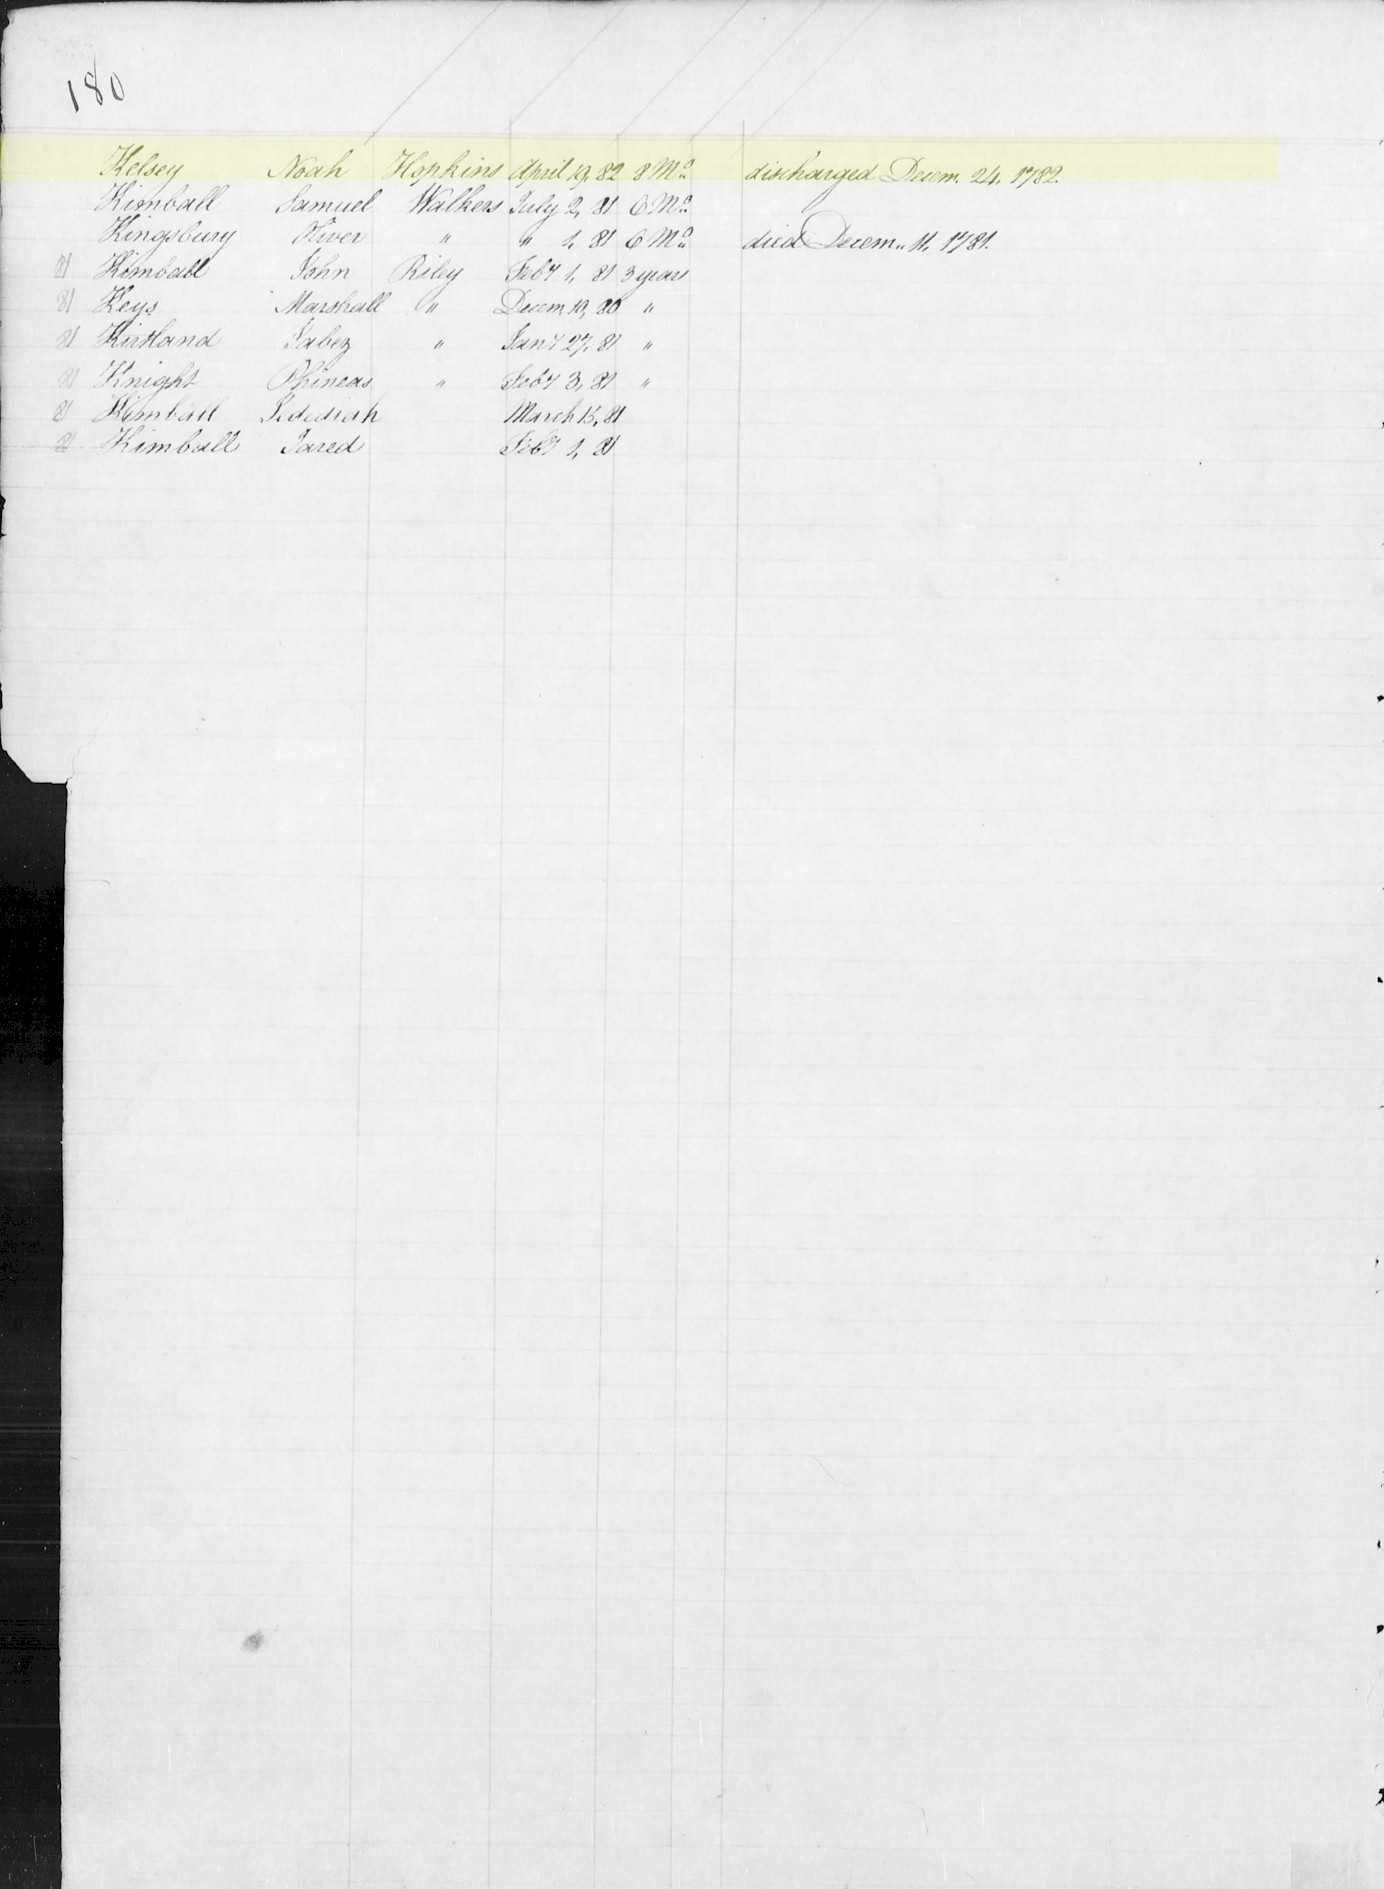 180
Kelsey Noah Hopkins April 19, 82 8 Mo discharged Decem. 24, 1782.
Kimball Samuel Walkers July 2, 81 6 Mo
Kingsbury Oliver " " 1, 81 6 Mo died Decem. 11, 1781.
81 Kimball John Riley Feby 1, 81 3 years
81 Keys Marshall " Decem 19, 80 "
81 Kirtland Jabez " Jany 27, 81 "
81 Knight Phineas " Feby 3, 81 "
81 Kimball Jedediah March 15, 81
81 Kimball Jared Feby 1, 81